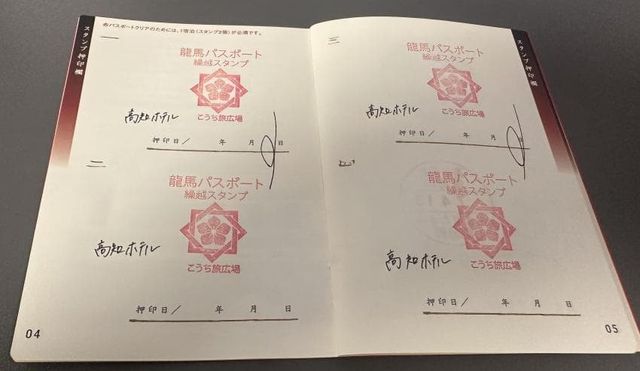 各パスポートクリアのためには、1宿泊(スタンプ2個)が必須です。
スタンプ押印欄
一
龍馬パスポート
繰越スタンプ
高知ホテル
こうち旅広場
押印日/ 年 月 日
二
龍馬パスポート
繰越スタンプ
高知ホテル
こうち旅広場
押印日/ 年 月 日
04
スタンプ押印欄
三
龍馬パスポート
繰越スタンプ
高知ホテル
こうち旅広場
押印日/ 年 月 日
龍馬パスポート
繰越スタンプ
高知ホテル
こうち旅広場
押印日/ 年 月 日
05